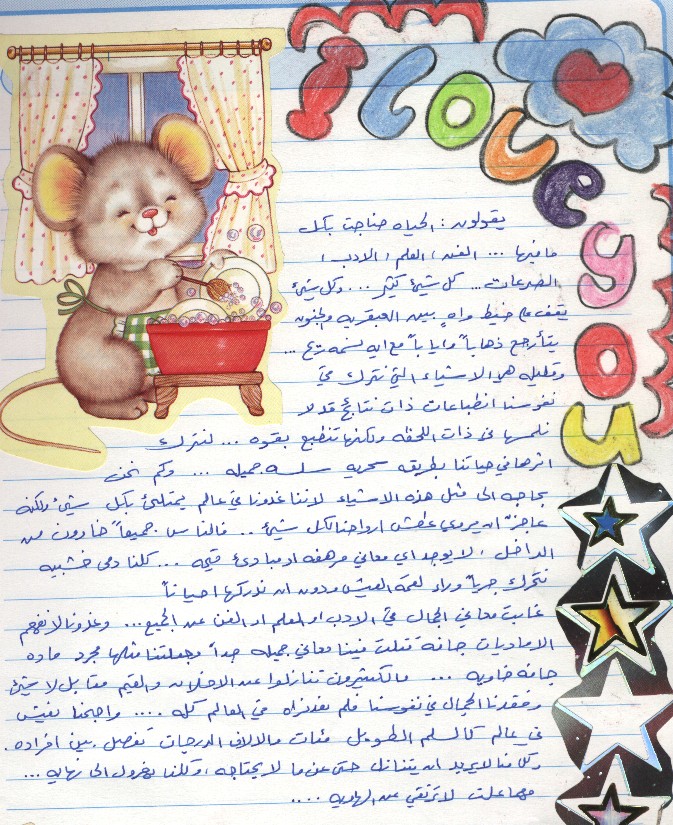 I Love you
يقولون : الحياه ضاجت بكل
ما فيها ... الفن ، العلم ، الادب ،
الصرعات ... كل شيئ كثير ... وكل شيئ
يقف على خيط واهٍ بين العبقريه والجنون
يتأرجح ذهاباً واياباً مع ايه نسمة ريح ...
وقليله هي الاشياء التي تترك في
نفوسنا انطباعات ذات نتائج قد لا
نلمسها في ذات اللحظه ولكنها تنطبع بقوه ... لتترك
اثرها في حياتنا بطريقه سحريه سلسه جميله ... وكم نحن
بحاجه الى مثل هذه الاشياء لاننا غدونا في عالم يمتلئ بكل شيئ ولكنه
عاجزٌ ان يروي عطش ارواحنا لكل شيئ ... فالناس جميعاً خاوون من
الداخل ، لا يوجد اي معاني مرهفه او مبادئ قيمه ... كلنا دمى خشبيه
تتحرك جرياً وراء لقمة العيش ودون ان ندركها احياناً
غابت معاني الجمال في الادب او العلم او الفن عند الجميع ... وغدونا لا نفهم
الا ماديات جافه قتلت فينا معاني جميله جداً وجعلتنا مثلها مجرد ماده
جافه خاويه ... فالكثيرون تنازلوا عن الاخلاق والقيم مقابل لا شيئ
وفقدنا الجمال في نفوسنا فلم نعد نراه في العالم كله .... واصبحنا نعيش
في عالم كالسلم الطويل مئات والالاف الدرجات تفصل بين افراده .
وكل منا لا يريد ان يتنازل حتى عن ما لا يحتاجه ، وكلنا يهرول الى نهايه ...
مهما علت لا ترتقي عن الهاويه ....